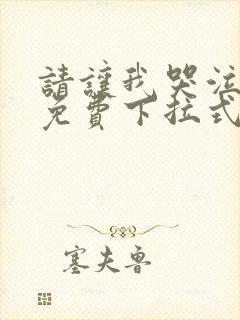 請讓我哭泣
免費下拉式
塞夫魯